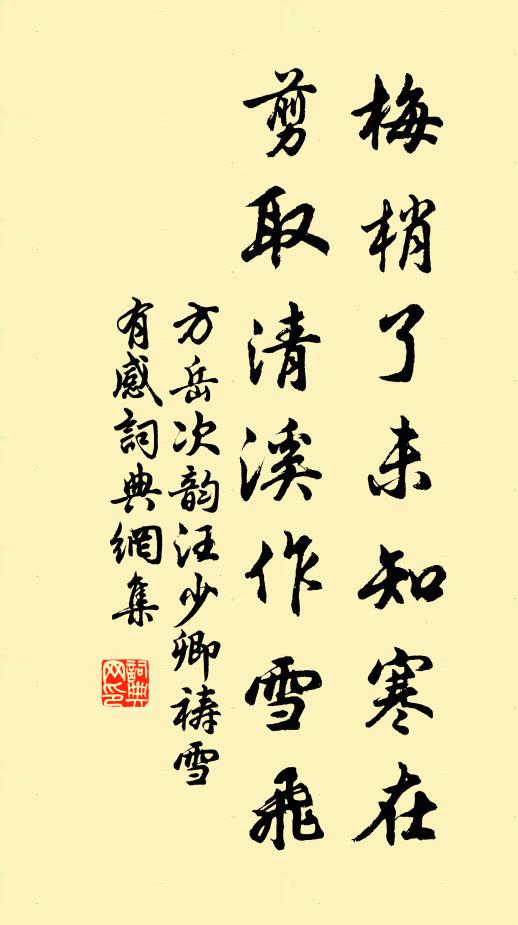 梅梢了未知寒在
剪取清溪作雪飛
方岳次韵汪少卿祷雪
有感詞典網集
詞典网印